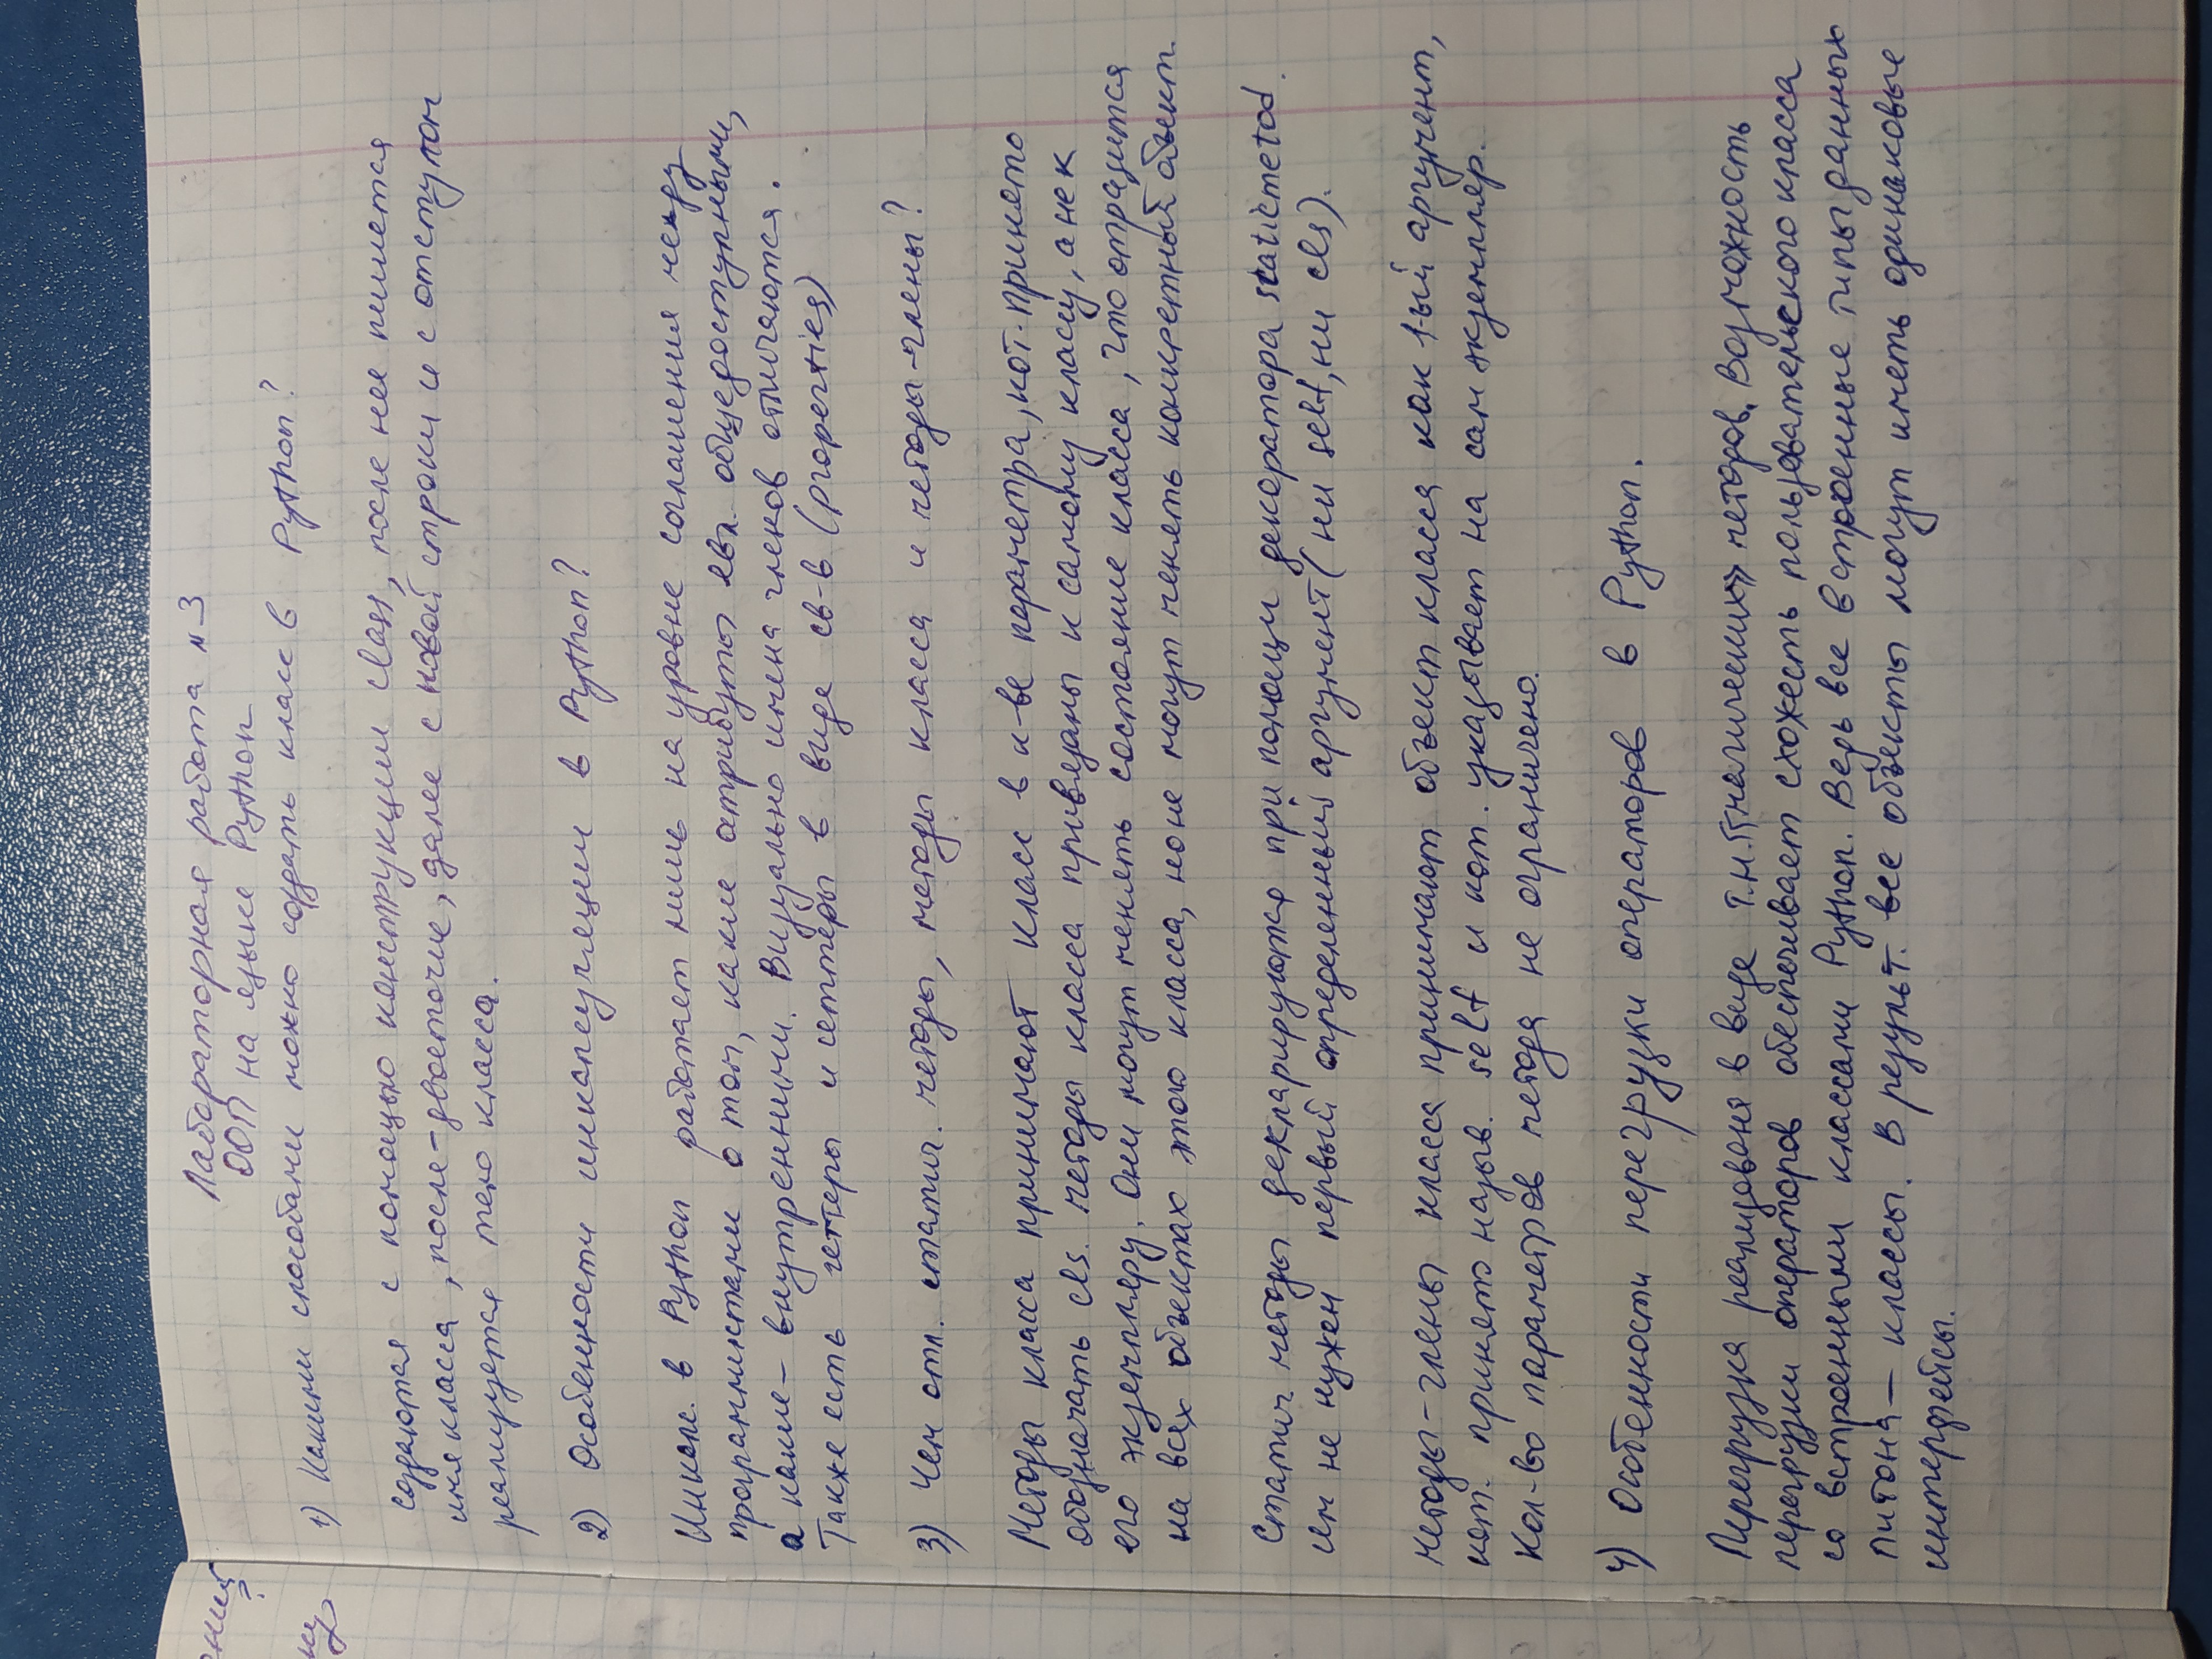 Лабораторная работа №3
ООП на языке Python
1) Какими способами можно создать класс в Python?
создаются с помощью конструкции class, после нее пишется
имя класса, после - двоеточие, далее с новой строки и с отступом
реализуется тело класса.
2) Особенности инкапсуляции в Python?
Инкапс. в Python работает лишь на уровне соглашения между
программистами о том, какие атрибуты явл. общедоступными,
а какие - внутренними. Визуально имена членов отличаются.
Также есть геттеры и сеттеры в виде св-в (properties)
3) Чем отл. статич. методы, методы класса и методы-члены?
Методы класса принимают класс в к-ве параметра, кот. принято
обозначать cls. методы класса привязаны к самому классу, а не к
его экземпляру. Они могут менять состояние класса, что отразится
на всех объектах этого класса, но не могут менять конкретный объект.
Статич. методы декларируются при помощи декоратора staticmetod.
Им не нужен первый определенный аргумент (ни self, ни cls).
методы-члены класса принимают объект класса как 1-ый аргумент,
кот. принято назыв. self и кот. указывает на сам экземпляр.
Кол-во параметров метода не ограничено.
4) Особенности перегрузки операторов в Python.
Перегрузка реализована в виде т.н. «магических» методов. Возможность
перегрузки операторов обеспечивает схожесть пользовательского класса
со встроенными классами Python. Ведь все встроенные типы данных
питона - классы. В результ. все объекты могут иметь одинаковые
интерфейсы.